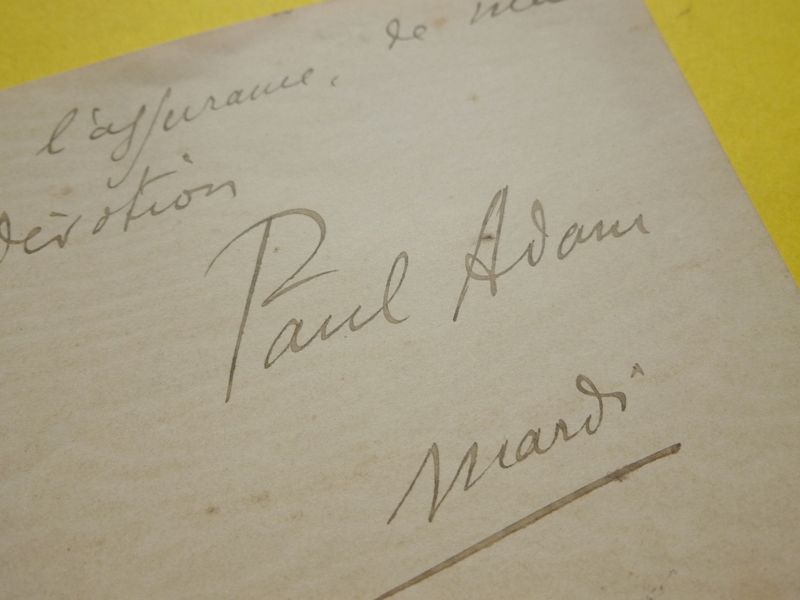 l'assurance, de ma
dévotion
Paul Adam
Mardi